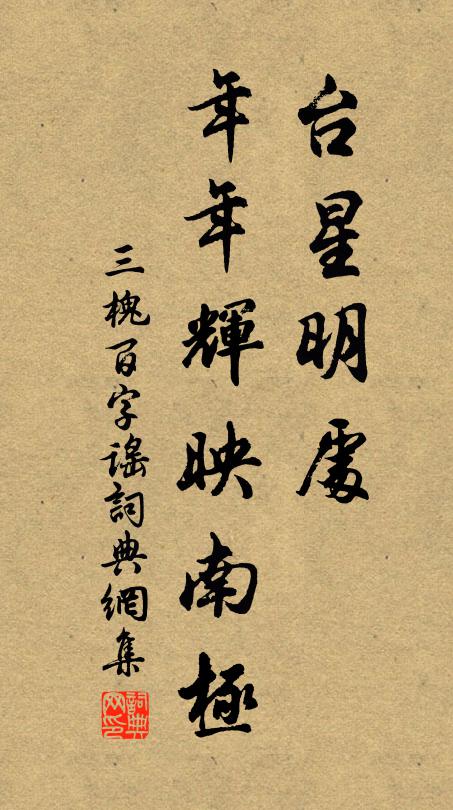 台星明處
年年輝映南極
三槐百字謠詞典網集
詞典
网印